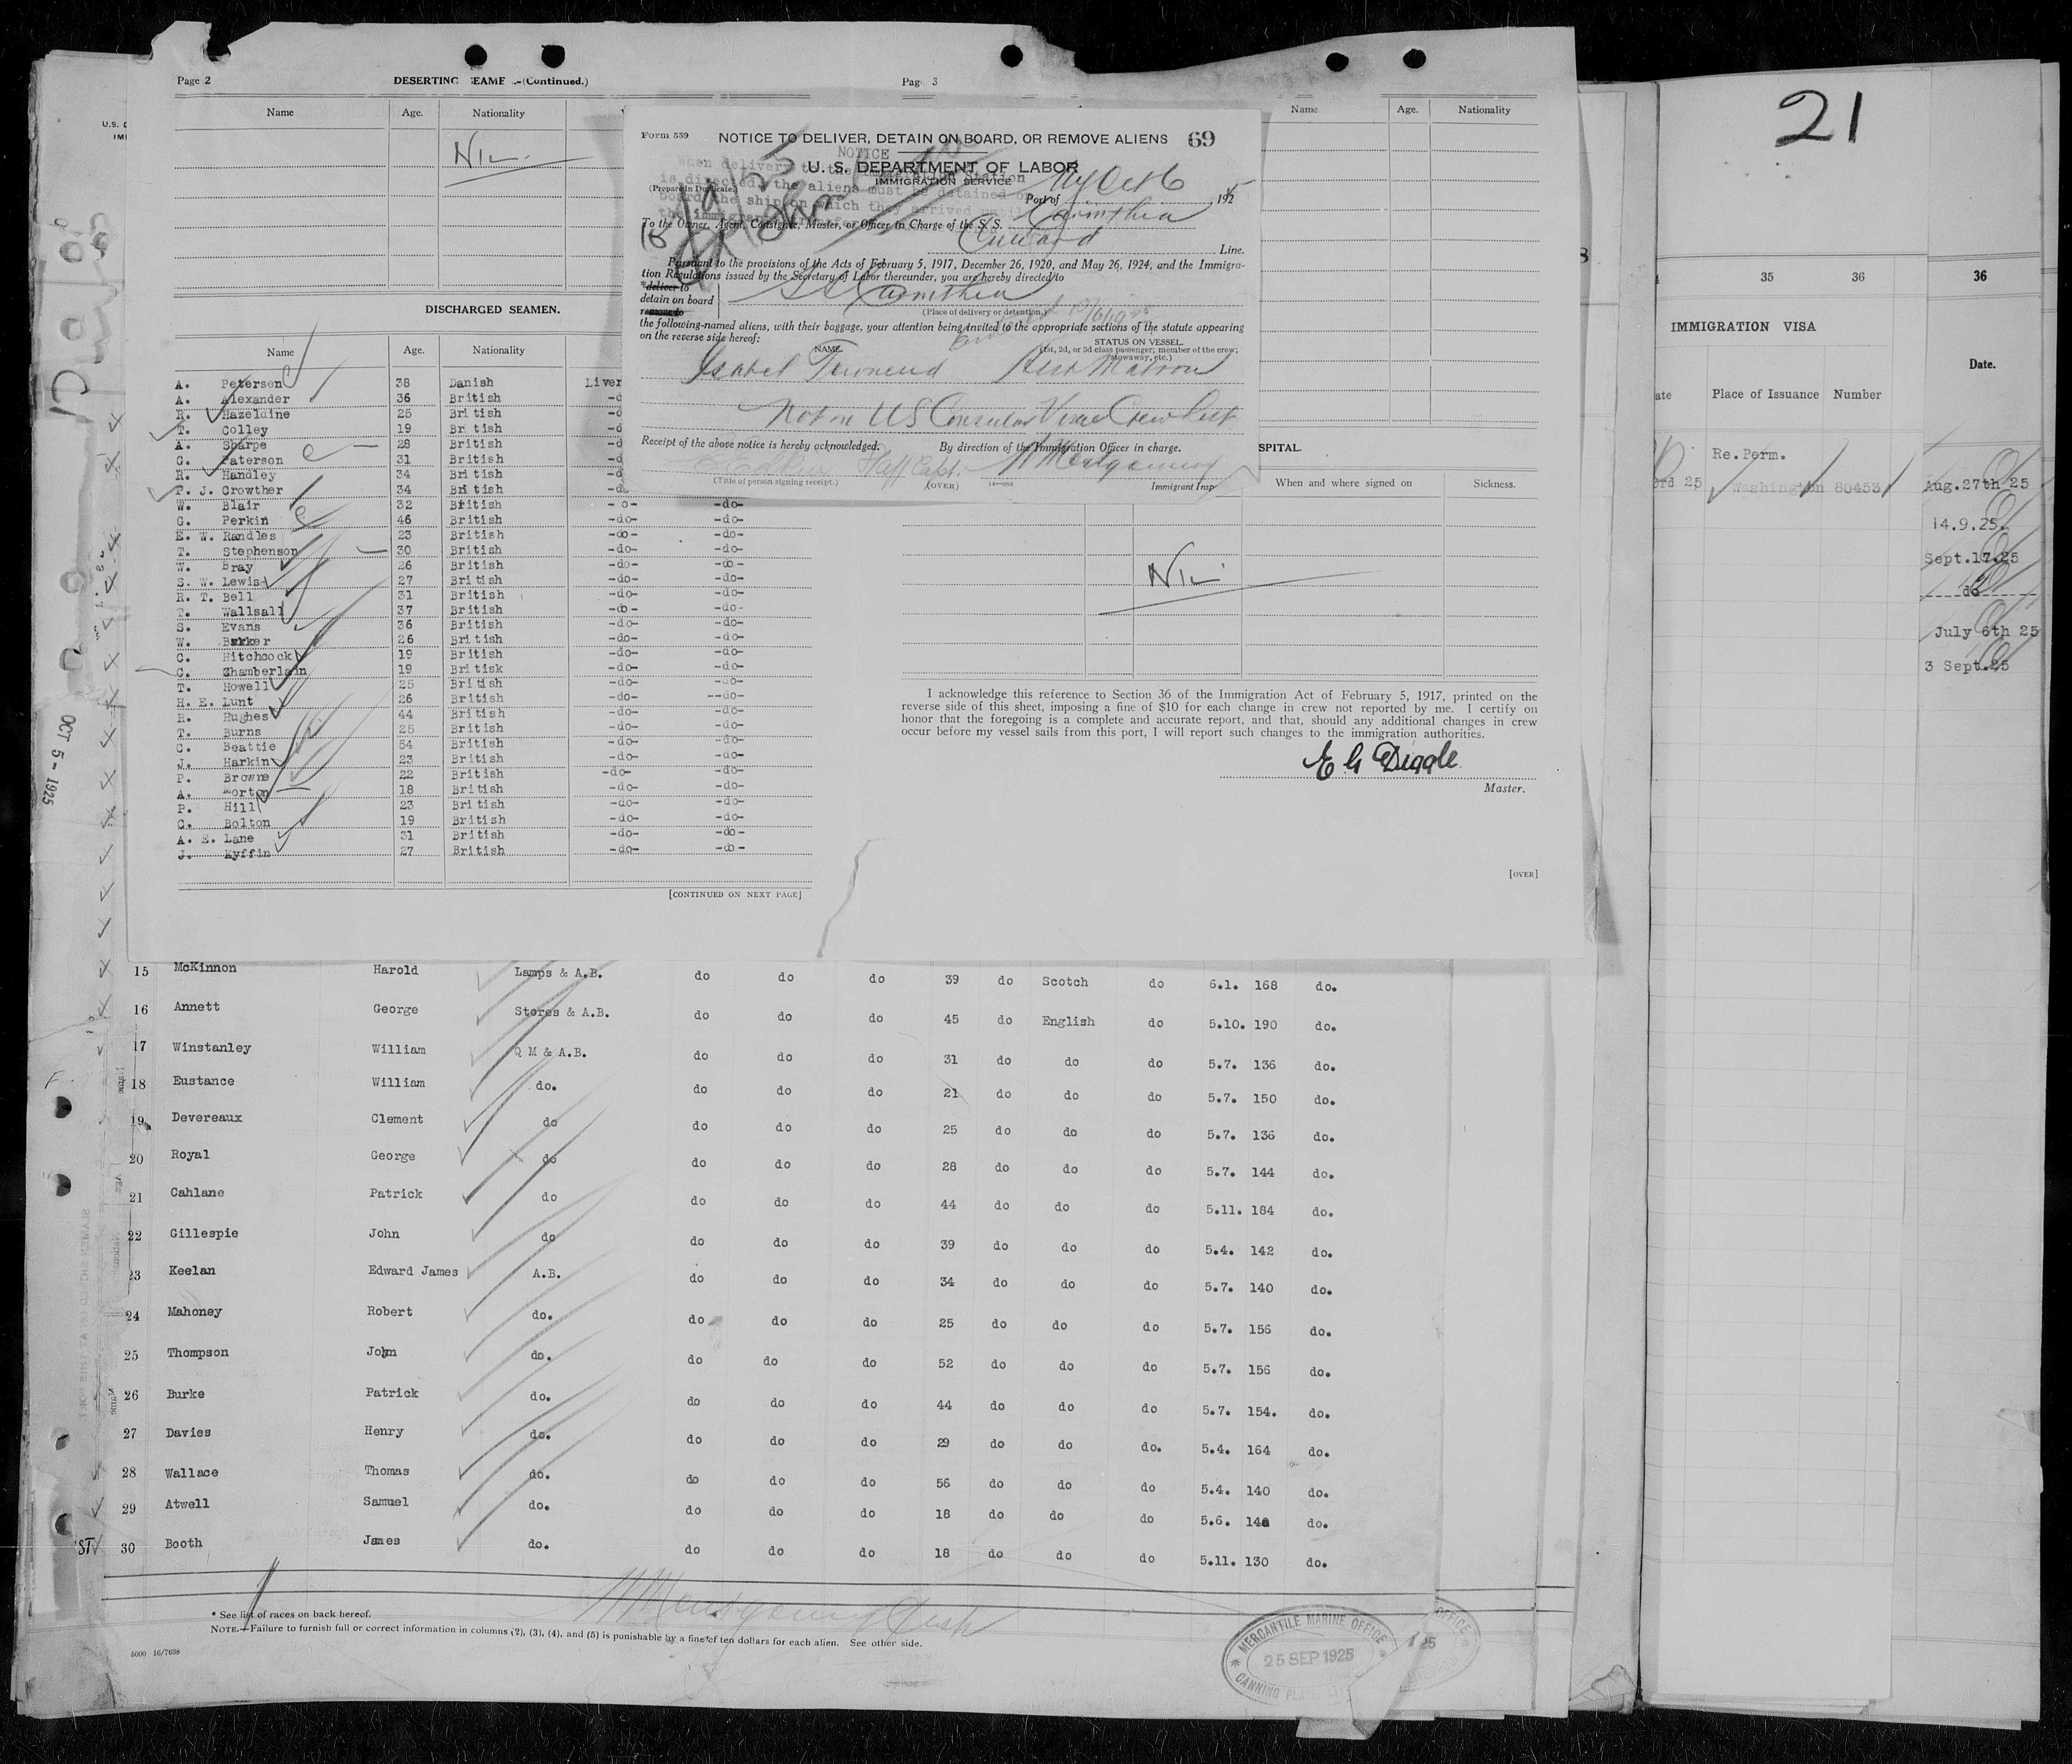 Page 2 DESERTING SEAME -(Continued.)
Name Age. Nationality
Nil
DISCHARGED SEAMEN.
Name Age. Nationality
A. Petersen 38 Danish Liver
A. Alexander 36 British
R. Hazeldine 25 British
T. Colley 19 British
A. Sharpe 28 British
G. Paterson 31 British
R. Handley 34 British
T. J. Crowther 34 British
W. Blair 32 British -do-
G. Perkin 46 British -do- -do-
E. W. Randles 23 British -do- -do-
T. Stephenson 30 British -do- -do-
W. Bray 26 British -do- -do-
S. W. Lewis 27 British -do- -do-
R. T. Bell 31 British -do- -do-
T. Wallsall 37 British -do- -do-
S. Evans 36 British -do- -do-
W. Barker 26 British -do- -do-
C. Hitchcock 19 British -do- -do-
C. Chamberlain 19 Britisk -do- -do-
T. Howell 25 British -do- -do-
H. E. Lunt 26 British -do- --do-
R. Hughes 44 British -do- -do-
T. Burns 25 British -do- -do-
C. Beattie 54 British -do- -do-
J. Harkin 23 British -do- -do-
P. Browne 22 British -do- -do-
A. Morton 18 British -do- -do-
P. Hill 23 British -do- -do-
C. Bolton 19 British -do- -do-
A. E. Lane 31 British -do- -do-
J. Kyffin 27 British -do- -do-
[CONTINUED ON NEXT PAGE]
Pag 3
Form 559 NOTICE TO DELIVER, DETAIN ON BOARD, OR REMOVE ALIENS 69
U. S. DEPARTMENT OF LABOR
IMMIGRATION SERVICE
(Prepare in Duplicate.)
Port of NY Oct 6, 1925
To the Owner, Agent, Consignee, Master, or Officer in Charge of the S. S. Carinthia
Cunard Line.
Pursuant to the provisions of the Acts of February 5, 1917, December 26, 1920, and May 26, 1924, and the Immigra-
tion Regulations issued by the Secretary of Labor thereunder, you are hereby directed to
*deliver to
detain on board SS Carinthia
remove to (Place of delivery or detention.)
the following-named aliens, with their baggage, your attention being invited to the appropriate sections of the statute appearing
on the reverse side hereof:
NAME. STATUS ON VESSEL.
(1st, 2d, or 3d class passenger; member of the crew;
stowaway, etc.)
Isabel Townend Asst Matron
Not on US Consular Visaed Crew List
Receipt of the above notice is hereby acknowledged. By direction of the Immigration Officer in charge.
Staff Capt. Montgomery
(Title of person signing receipt.) (OVER) Immigrant Insp
Name Age. Nationality
SPITAL.
When and where signed on Sickness.
Nil
I acknowledge this reference to Section 36 of the Immigration Act of February 5, 1917, printed on the
reverse side of this sheet, imposing a fine of $10 for each change in crew not reported by me. I certify on
honor that the foregoing is a complete and accurate report, and that, should any additional changes in crew
occur before my vessel sails from this port, I will report such changes to the immigration authorities.
E G Diggle
Master.
[OVER]
OCT 5 - 1925
15 McKinnon Harold Lamps & A.B. do do do 39 do Scotch do 6.1. 168 do.
16 Annett George Stores & A.B. do do do 45 do English do 5.10. 190 do.
17 Winstanley William Q M & A.B. do do do 31 do do do 5.7. 136 do.
18 Eustance William do. do do do 21 do do do 5.7. 150 do.
19 Devereaux Clement do do do do 25 do do do 5.7. 136 do.
20 Royal George do do do do 28 do do do 5.7. 144 do.
21 Cahlane Patrick do do do do 44 do do do 5.11. 184 do.
22 Gillespie John do do do do 39 do do do 5.4. 142 do.
23 Keelan Edward James A.B. do do do 34 do do do 5.7. 140 do.
24 Mahoney Robert do. do do do 25 do do do 5.7. 156 do.
25 Thompson John do. do do do 52 do do do 5.7. 156 do.
26 Burke Patrick do. do do do 44 do do do 5.7. 154. do.
27 Davies Henry do. do do do 29 do do do. 5.4. 164 do.
28 Wallace Thomas do. do do do 56 do do do 5.4. 140 do.
29 Atwell Samuel do. do do do 18 do do do 5.6. do.
30 Booth James do. do do do 18 do do do 5.11. 130 do.
* See list of races on back hereof.
NOTE.—Failure to furnish full or correct information in columns (2), (3), (4), and (5) is punishable by a fine of ten dollars for each alien. See other side.
5000 16/7638
MERCANTILE MARINE OFFICE
25 SEP 1925
CANNING PL
21
35 36
IMMIGRATION VISA
ate Place of Issuance Number
Re.Perm.
25 Washington 80453
36
Date.
Aug.27th 25
14.9.25.
Sept.17.25
do
July 6th 25
3 Sept.25